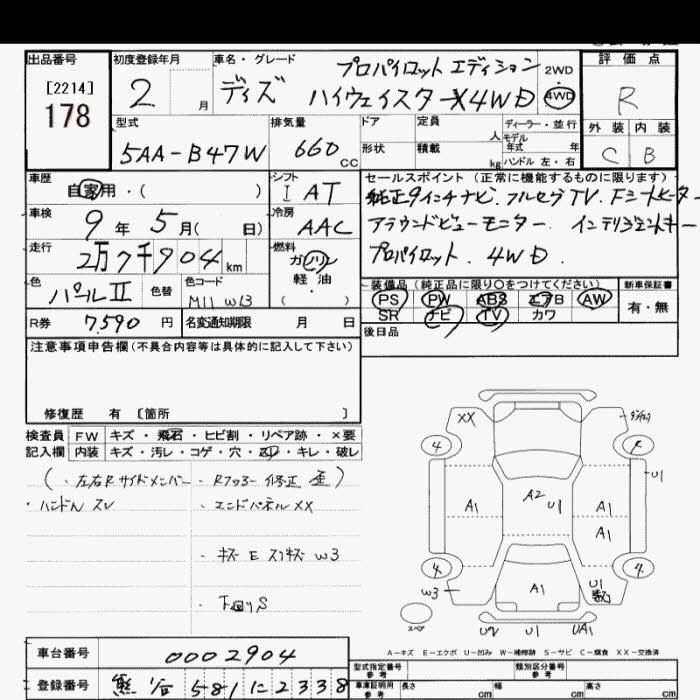 出品番号
[2214]
178
初度登録年月
2 月
車名・グレード
プロパイロット エディション
ディズ ハイウェイスターX4WD
2WD
・
4WD
評価点
R
外装 内装
C B
型式
5AA-B47W
排気量
660 CC
ドア
形状
定員 人
積載 kg
ディーラー・並行
モデル
年式 年
ハンドル 左・右
車歴
自家用・( )
シフト
I AT
車検
9年 5月( 日)
冷房
AAC
走行
2万7千904 km
燃料
ガソリン
軽油
・
( )
色
パールⅡ
色替
色コード
M11 W13
R券 7,590 円
名変通知期限 月 日
セールスポイント(正常に機能するものに限ります)
純正9インチナビ.フルセグTV.Fシートヒーター
アラウンドビューモニター. インテリジェントキー
プロパイロット. 4WD.
装備品(純正品に限り○をつけてください)
PS PW ABS エアB AW
SR ナビ TV カワ
新車保証書
有・無
後日品
注意事項申告欄(不具合内容等は具体的に記入して下さい)
修復歴 有 [箇所 ]
検査員
記入欄
FW キズ・飛石・ヒビ割・リペア跡・×要
内装 キズ・汚レ・コゲ・穴・凹・キレ・破レ
(・左右Rサイドメンバー・Rフロアー 修正 歪)
・ハンドルスレ
・エンドパネルXX
・キズ E スリキズ W3
・下回りS
XX
4
A1
A2
U1
A1
A1
U1
4
4
W3
A1
U1
スペア
U2
U1
UA1
A-キズ E-エクボ U-凹み W-補修跡 S-サビ C-腐食 XX-交換済
車台番号 0002904
登録番号 熊谷 581 に 2338
型式指定番号
参考
類別区分番号
参考
車庫証明用
参考
長さ cm
幅 cm
高さ cm